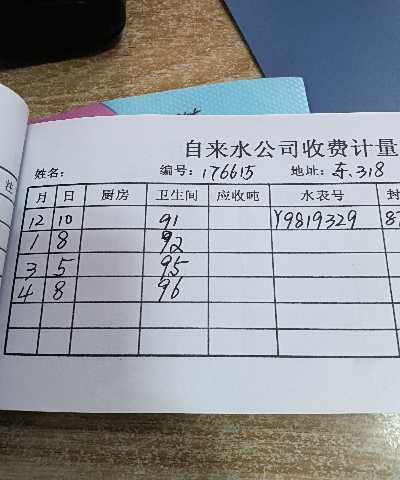 自来水公司收费计量
姓名： 编号：176615 地址：东.318
月 日 厨房 卫生间 应收吨 水表号 封
12 10 91 Y9819329 87
1 8 92
3 5 95
4 8 96